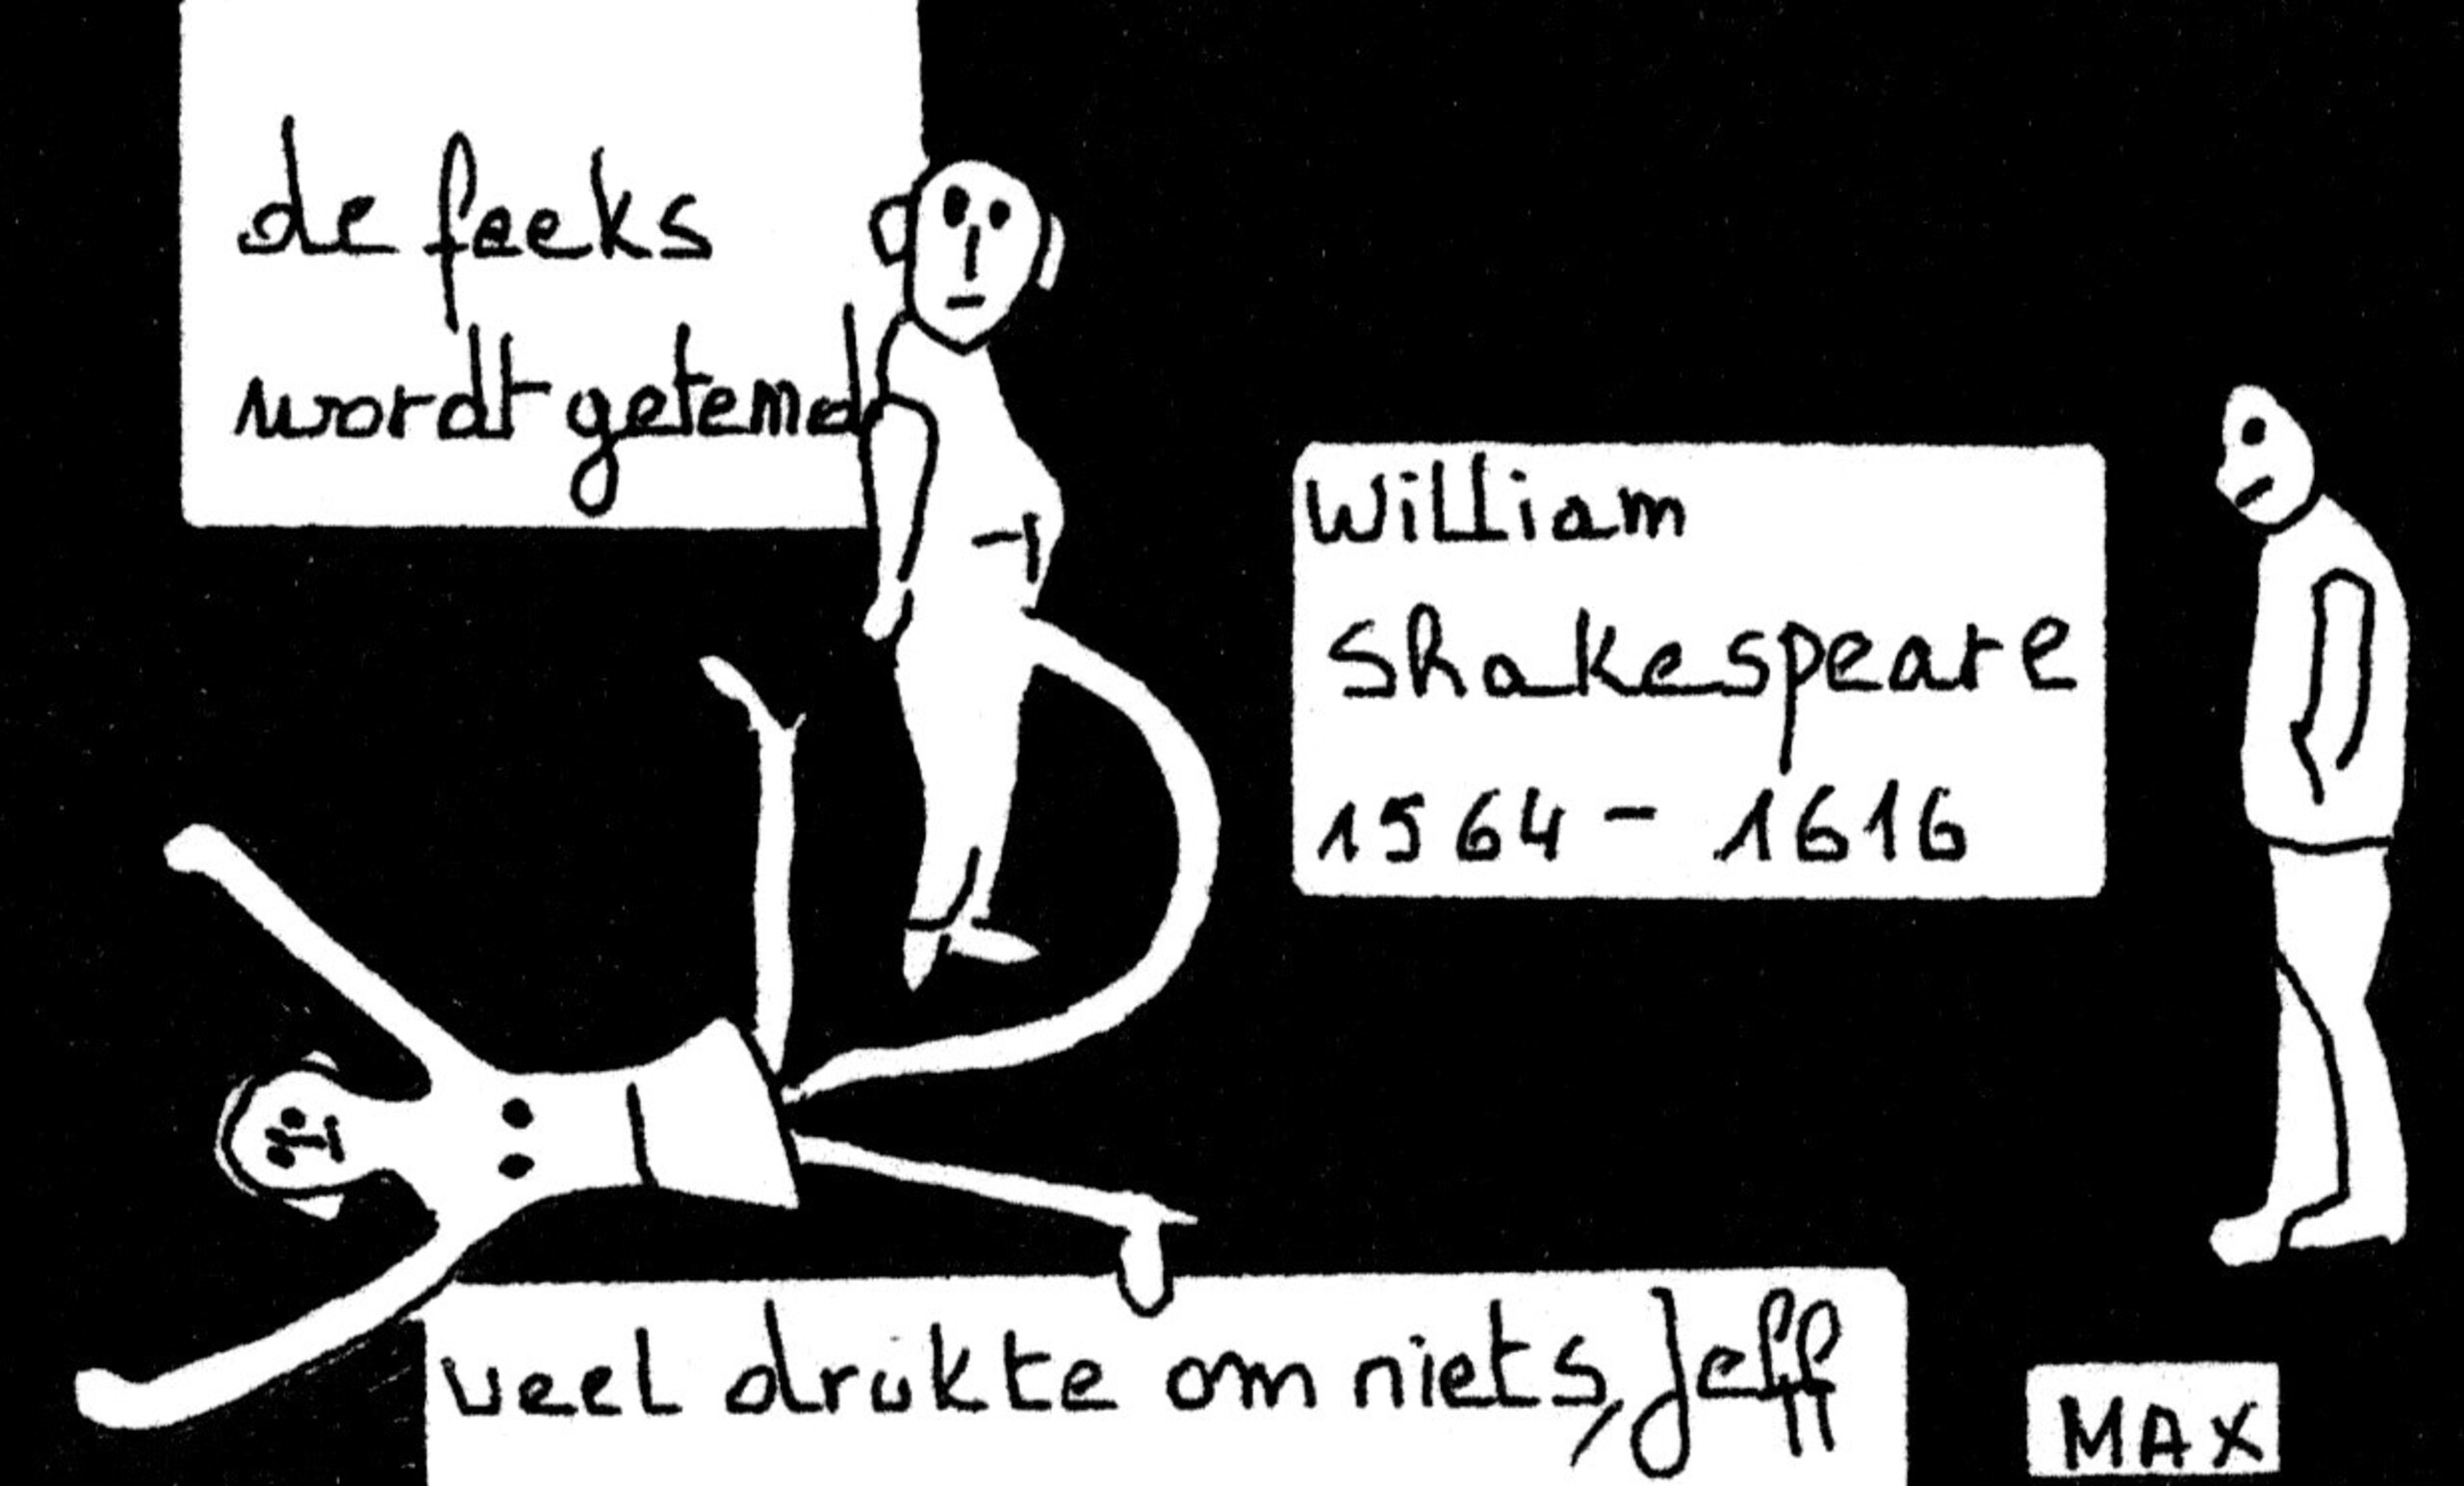 de feeks
wordt getemd
William
Shakespeare
1564 - 1616
veel drukte om niets, Jeff
MAX